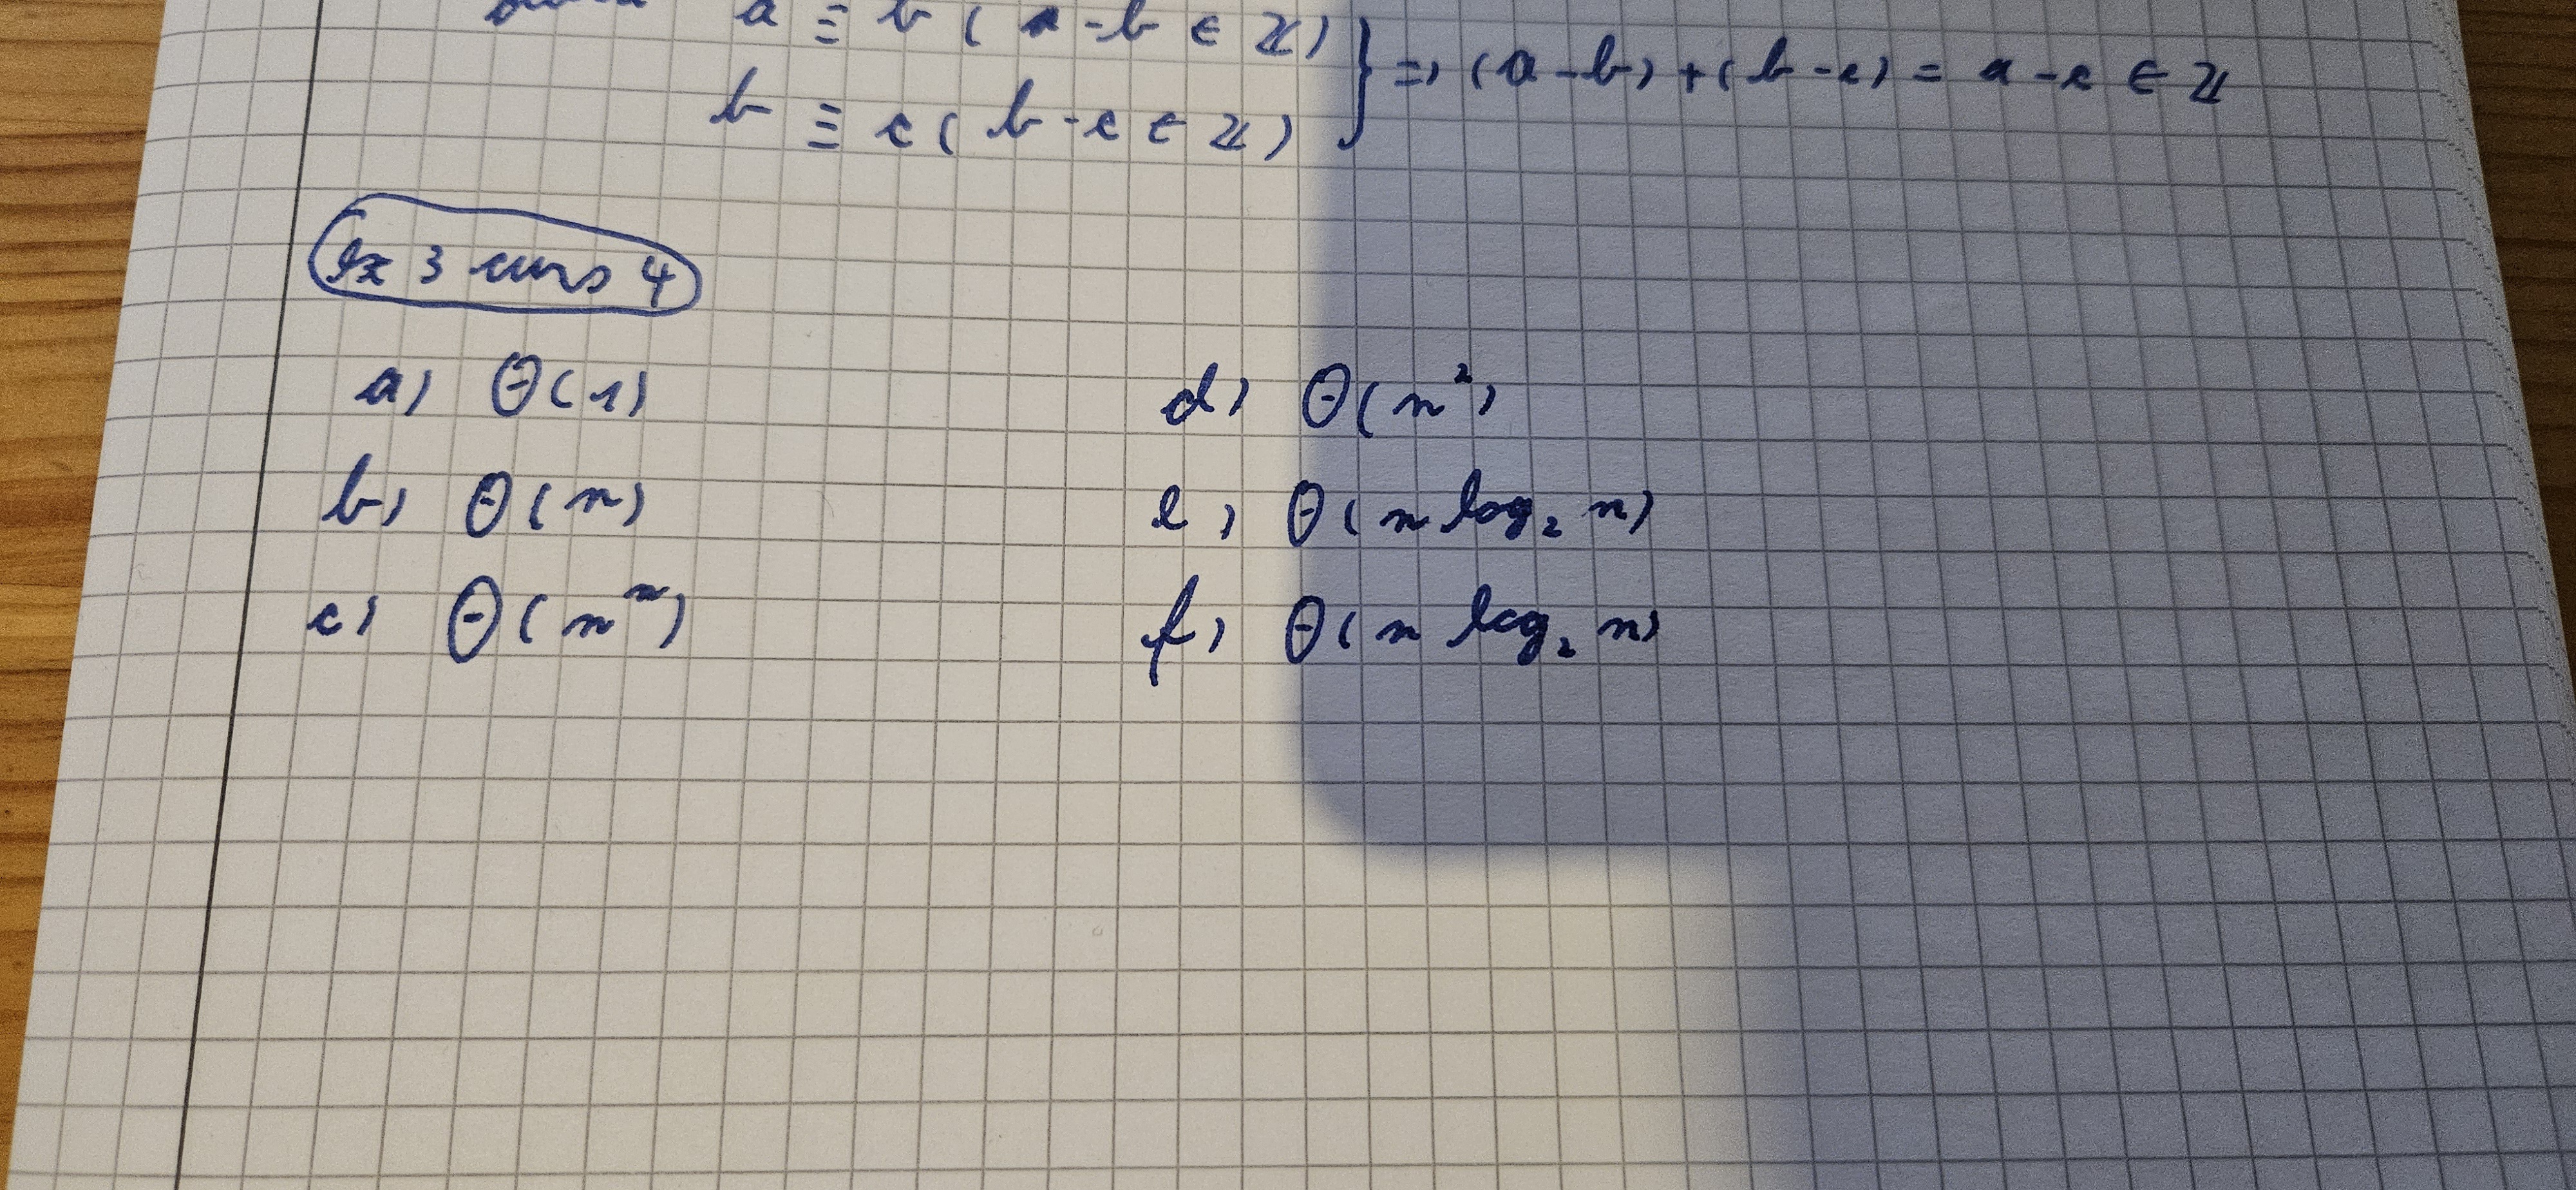 a ≡ b ( a - b ∈ ℤ )
b ≡ c ( b - c ∈ ℤ ) } => (a - b) + (b - c) = a - c ∈ ℤ
Ex 3 curs 4
a) Θ(1)
b) Θ(n)
c) Θ(nⁿ)
d) Θ(n²)
e) Θ(n log₂ n)
f) Θ(n log₂ n)